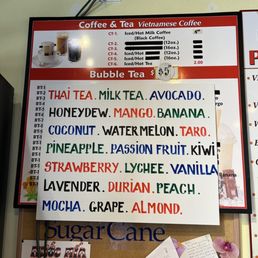 Coffee & Tea Vietnamese Coffee
CT-1. Iced/Hot Milk Coffee
(Black Coffee)
CT-2. (12oz.)
CT-3. (16oz.)
CT-4. Iced/Hot (12oz.)
CT-5. Iced/Hot (16oz.)
CT-6. Iced/Hot Tea 2.00
Bubble Tea $
THAI TEA. MILK TEA. AVOCADO.
HONEYDEW. MANGO. BANANA.
COCONUT. WATERMELON. TARO.
PINEAPPLE. PASSION FRUIT. KIWI
STRAWBERRY. LYCHEE. VANILLA
LAVENDER. DURIAN. PEACH.
MOCHA. GRAPE. ALMOND.
Sugar Cane